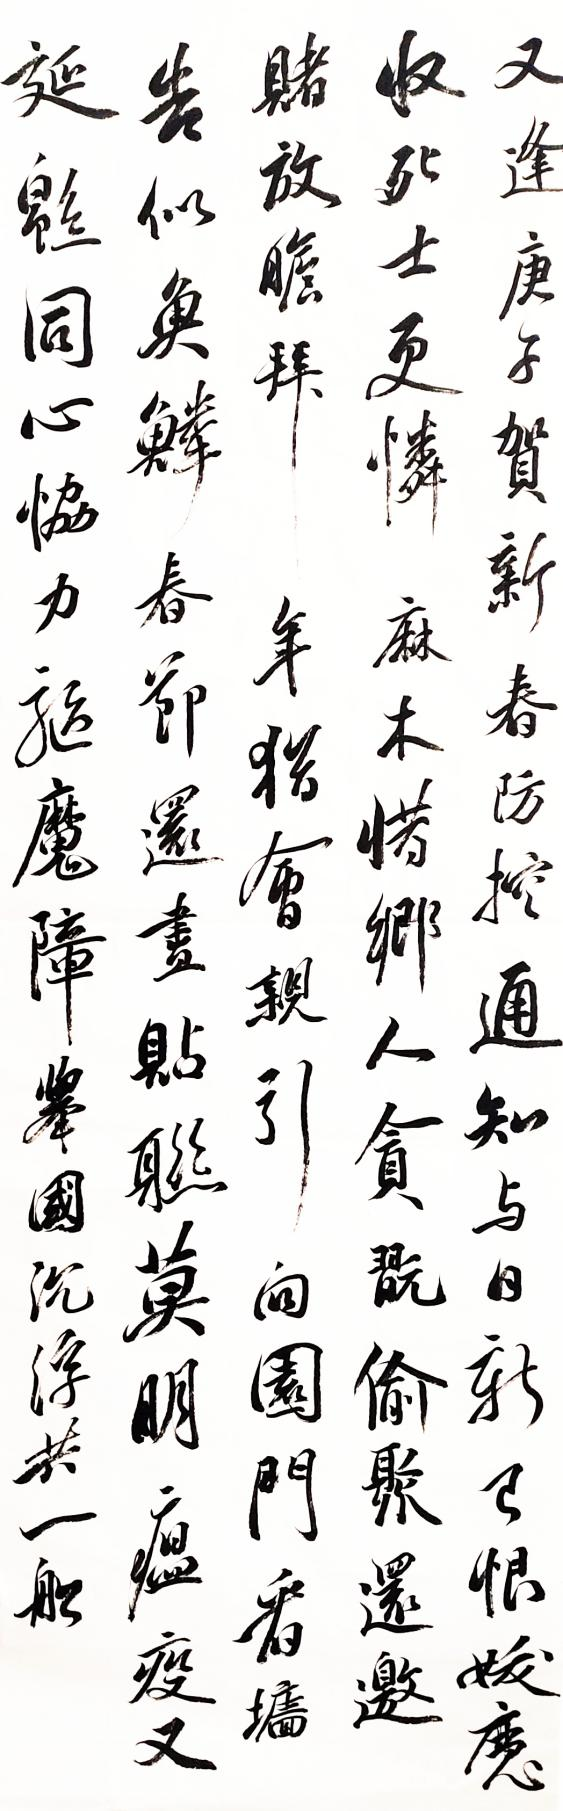 又逢庚子賀新春防控通知与日新已恨妖魔
收死士更憐麻木惜鄉人貪翫偷聚還邀
賭放膽拜年猶會親引向園門看墻
告似魚鱗春節還畫貼聯莫明瘟疫又
延綿同心協力驅魔障舉國沉浮共一船